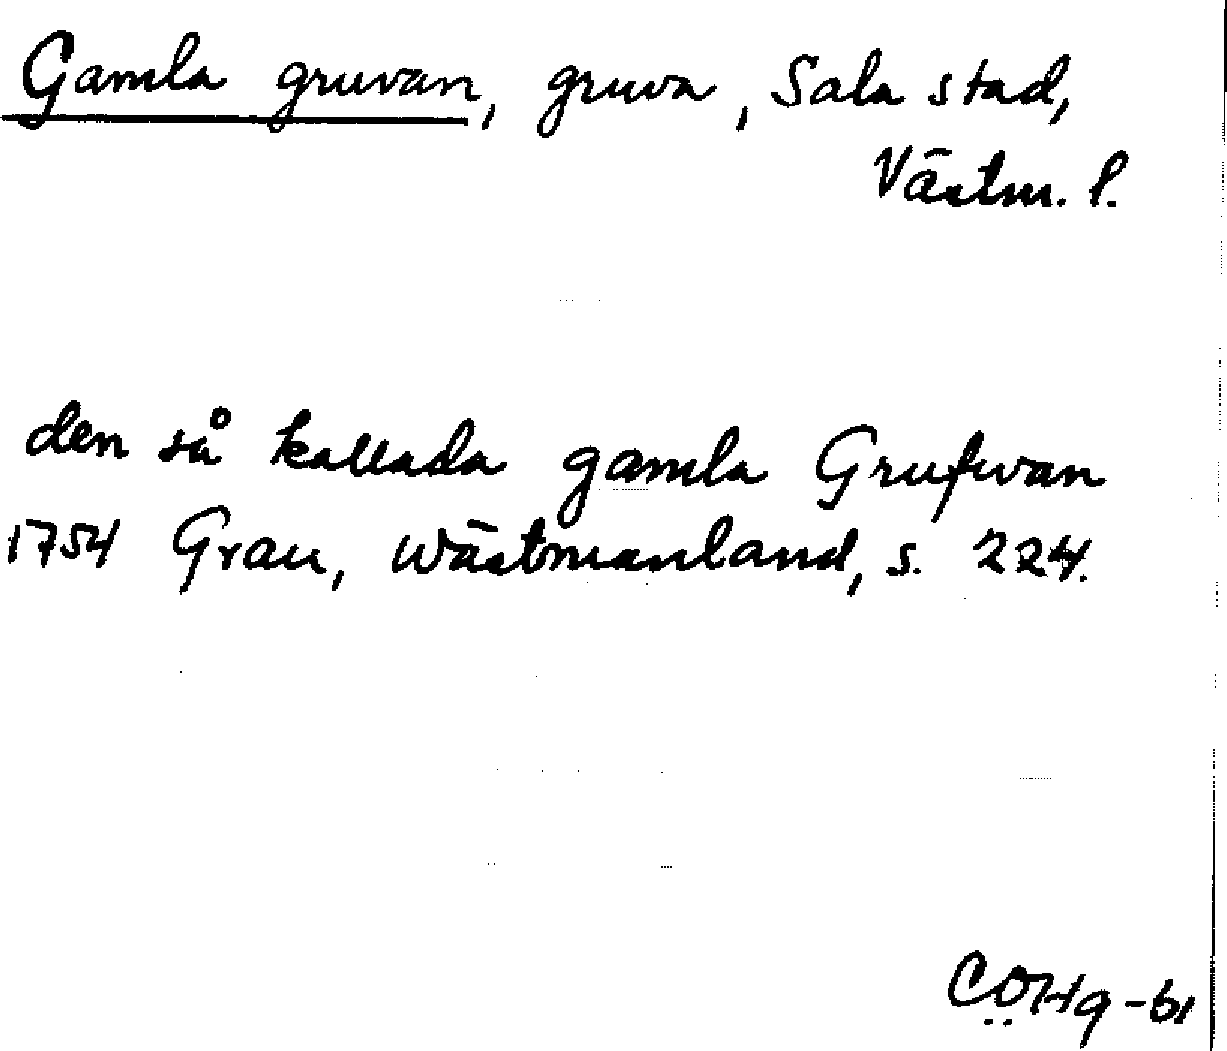 Gamla gruvan, gruva, Sala stad,
Västm. l.
den så kallada gamla Grufwan
1754 Grau, Wästmanland, s. 224.
CÖHg -61